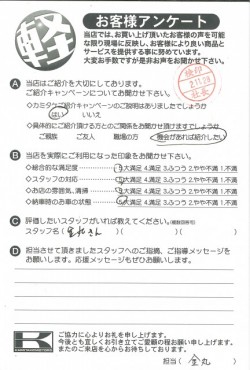 軽
お客様アンケート
当店では、お買い上げ頂いたお客様の声を可能
な限り現場に反映し、お客様により良い商品と
サービスを提供する事に努めています。
大変お手数ですが是非お声をお聞かせ下さい。
A 当店はご紹介を大切にしております。
ご紹介キャンペーンについてお聞かせ下さい。
はい いいえ
ご親族 ご友人 職場の方 機会があれば紹介したい
B 当店を実際にご利用になった印象をお聞かせ下さい。
◇総合的な満足度 5.大満足 4.満足 3.ふつう 2.やや不満 1.不満
◇スタッフの対応 5.大満足 4.満足 3.ふつう 2.やや不満 1.不満
◇お店の雰囲気、清掃 5.大満足 4.満足 3.ふつう 2.やや不満 1.不満
◇納車時のお車の状態 5.大満足 4.満足 3.ふつう 2.やや不満 1.不満
C 評価したいスタッフがいれば教えてください。
スタッフ名( さん )
D 担当させて頂きましたスタッフへのご指摘、ご指導メッセージを
お願いします。応援メッセージもぜひお願いします。
K
ご協力に心よりお礼を申し上げます。
今後とも宜しくお引き立てご愛顧の程お願い申し上げます。
またのご来店を心からお待ちしております。
担当( 金丸 )